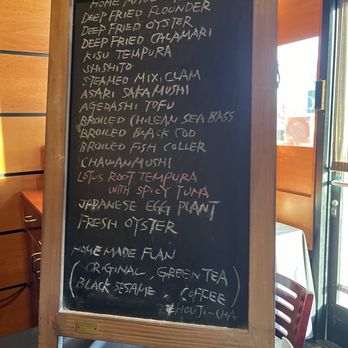 HOME MADE
DEEP FRIED FLOUNDER
DEEP FRIED OYSTER
DEEP FRIED CALAMARI
KISU TEMPURA
SHISHITO
STEAMED MIX CLAM
ASARI SAKAMUSHI
AGEDASHI TOFU
BROILED CHILEAN SEA BASS
BROILED BLACK COD
BROILED FISH COLLER
CHAWANMUSHI
LOTUS ROOT TEMPURA
WITH SPICY TUNA
JAPANESE EGG PLANT
FRESH OYSTER
HOME MADE FLAN
(ORIGINAL, GREEN TEA
BLACK SESAME, COFFEE)
HOUJI-CHA